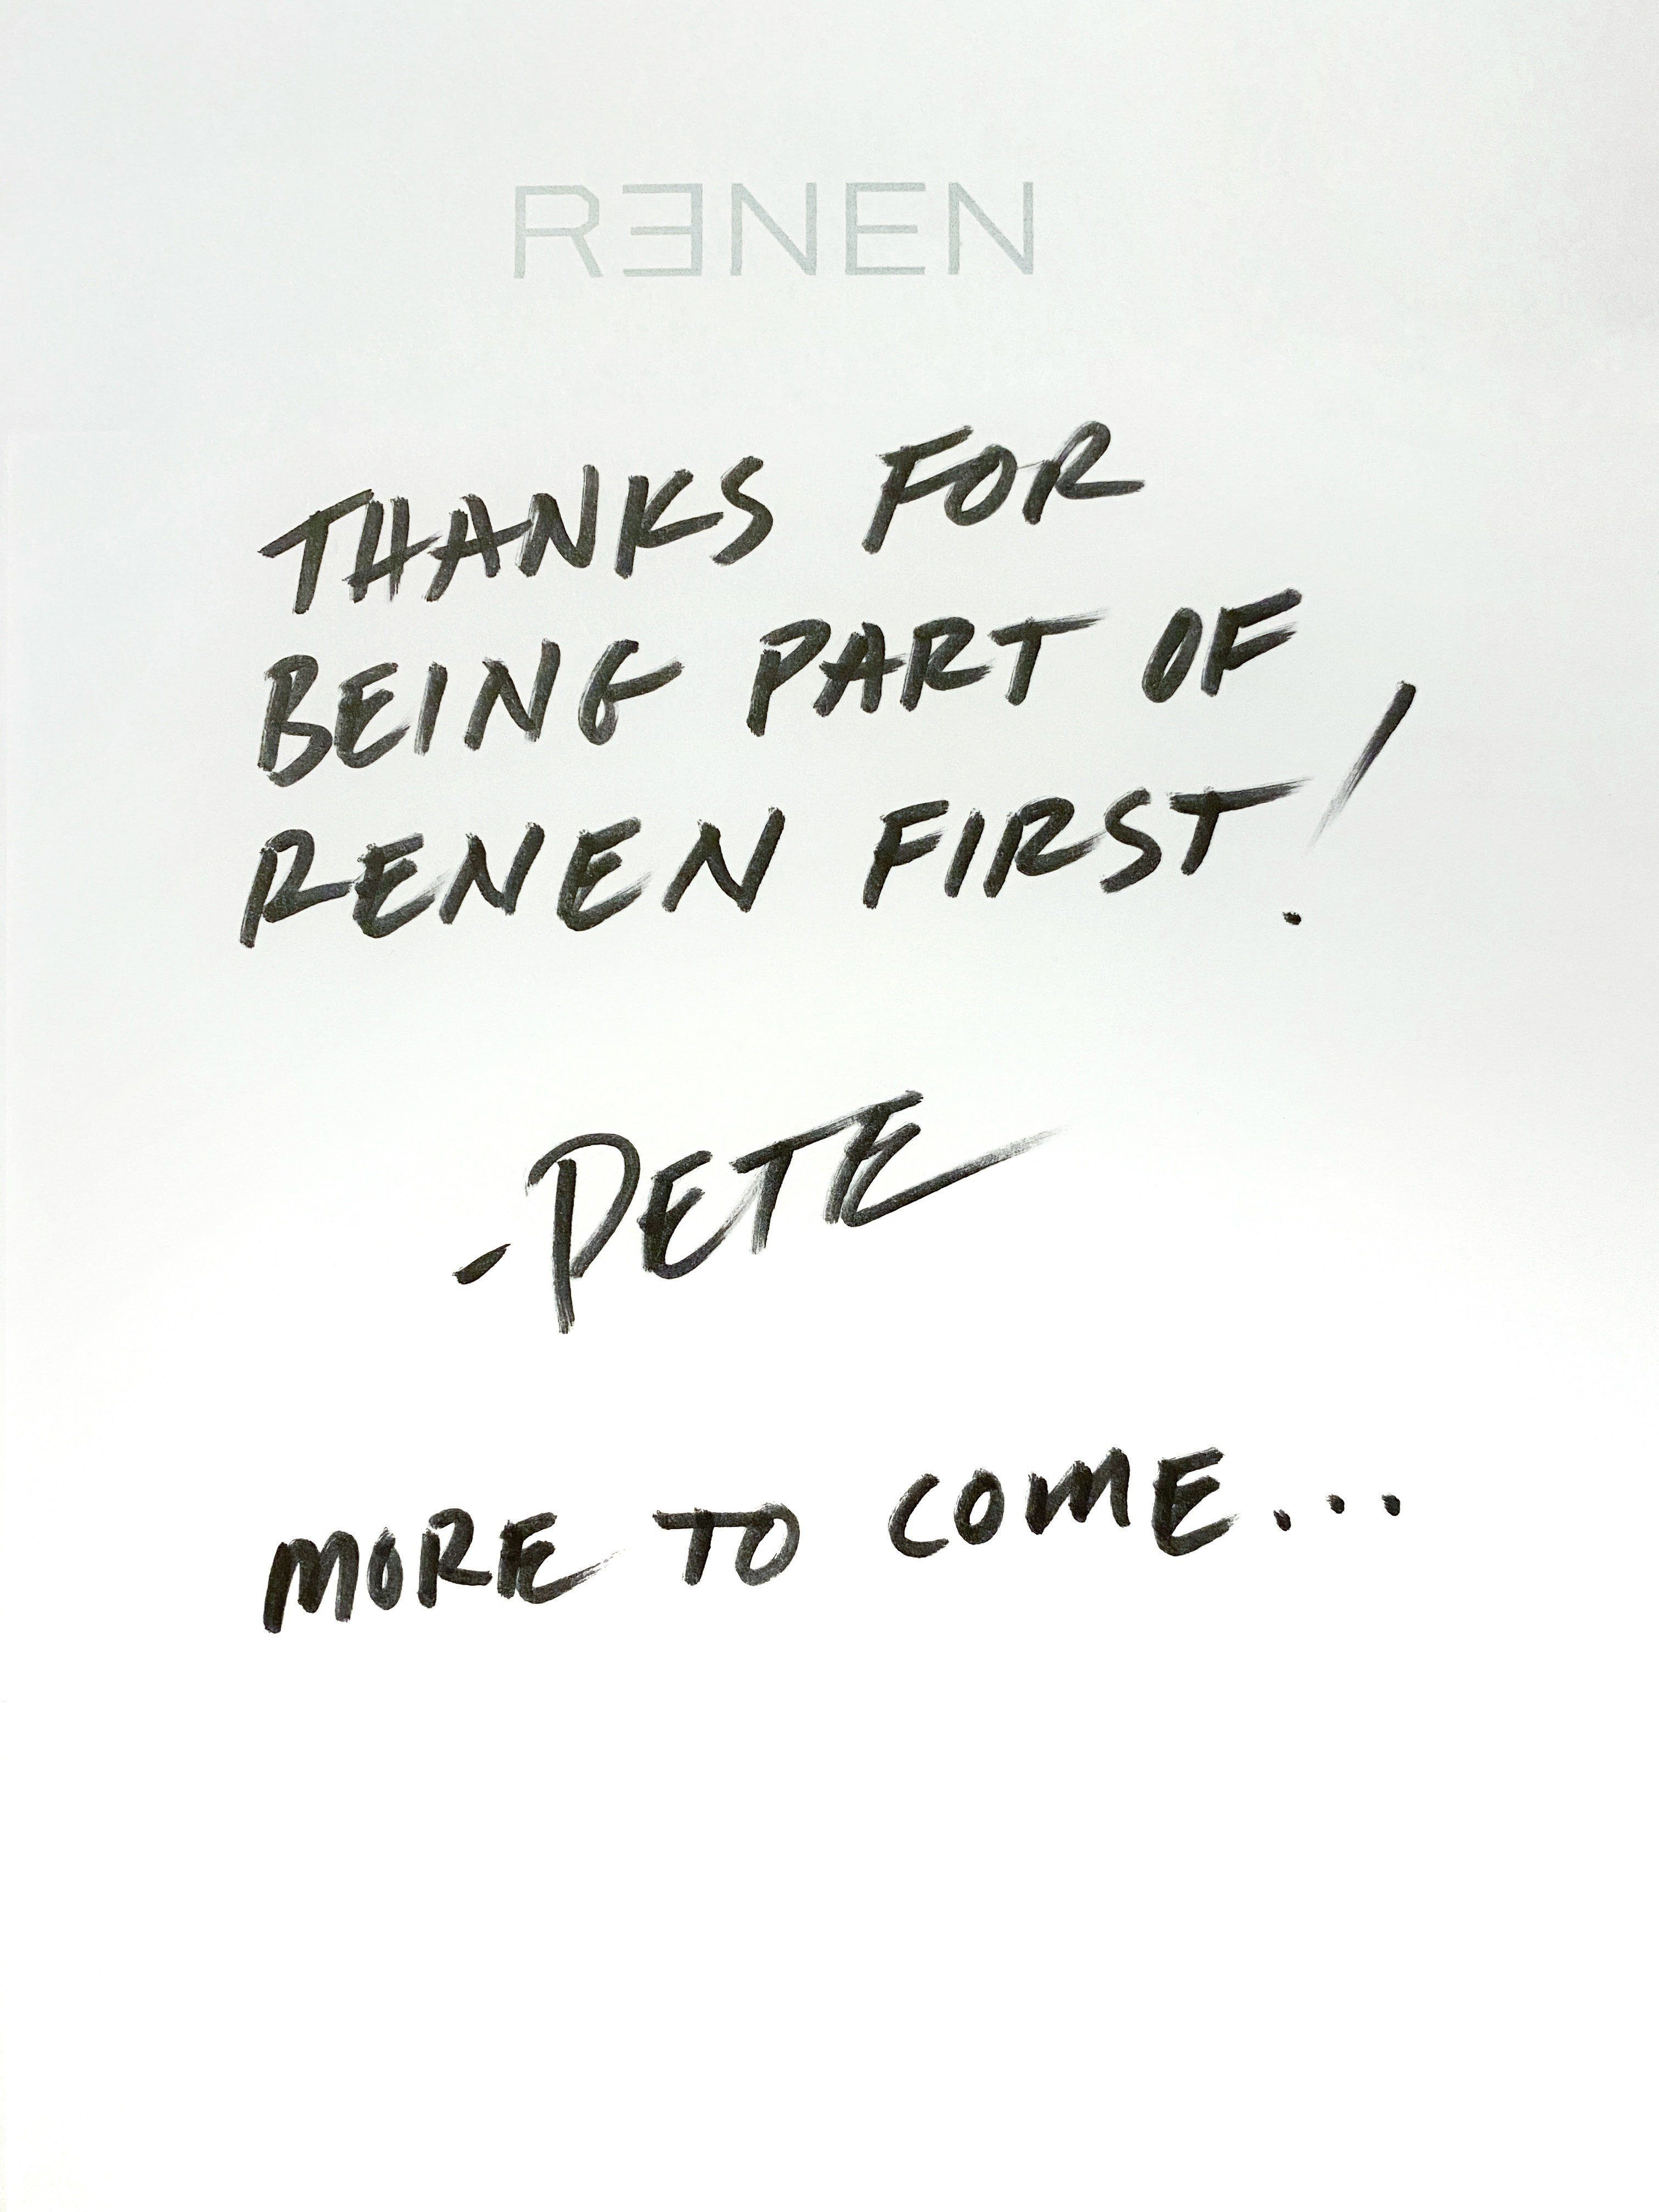 RƎNEN
THANKS FOR
BEING PART OF
RENEN FIRST!
-PETE
MORE TO COME...